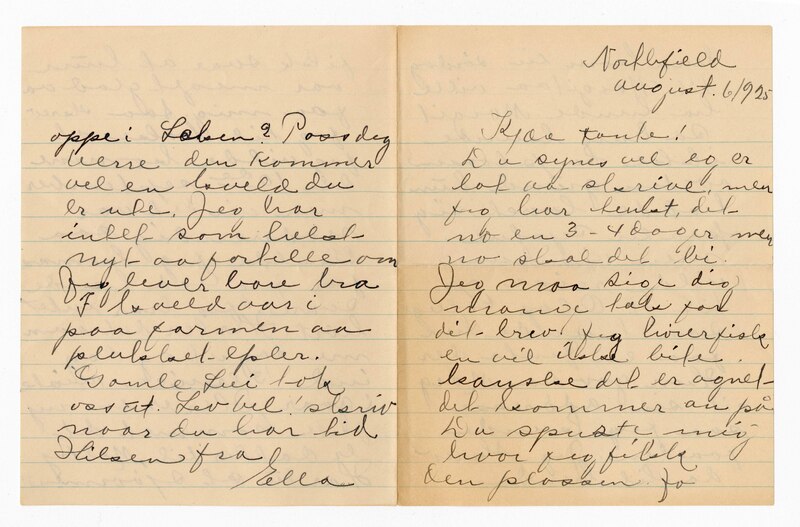 Northfield
august. 6/1925
Kjæe tante!
Du synes vel eg er
lat aa skrive, men
jeg har tenkt, det
no en 3-4 dager men
no skal det bi.
Jeg maa sige dig
mange tak for
dit brev! jeg
en vil ikke bite.
kanske det er agnet
det kommer an på
Du spuste mig
hvor jeg fik
den plassen. Jo
oppe i ? Pass deg
verre den kommer
vel en kveld du
er ute. Jeg har
intet som helst
nyt aa fortelle om
Jeg lever bare bra
I kveld var i
paa farmen aa
plukket epler.
Gamle tok
oss ut. Lev vel! skriv
naar du har tid
Hilsen fra
Ella